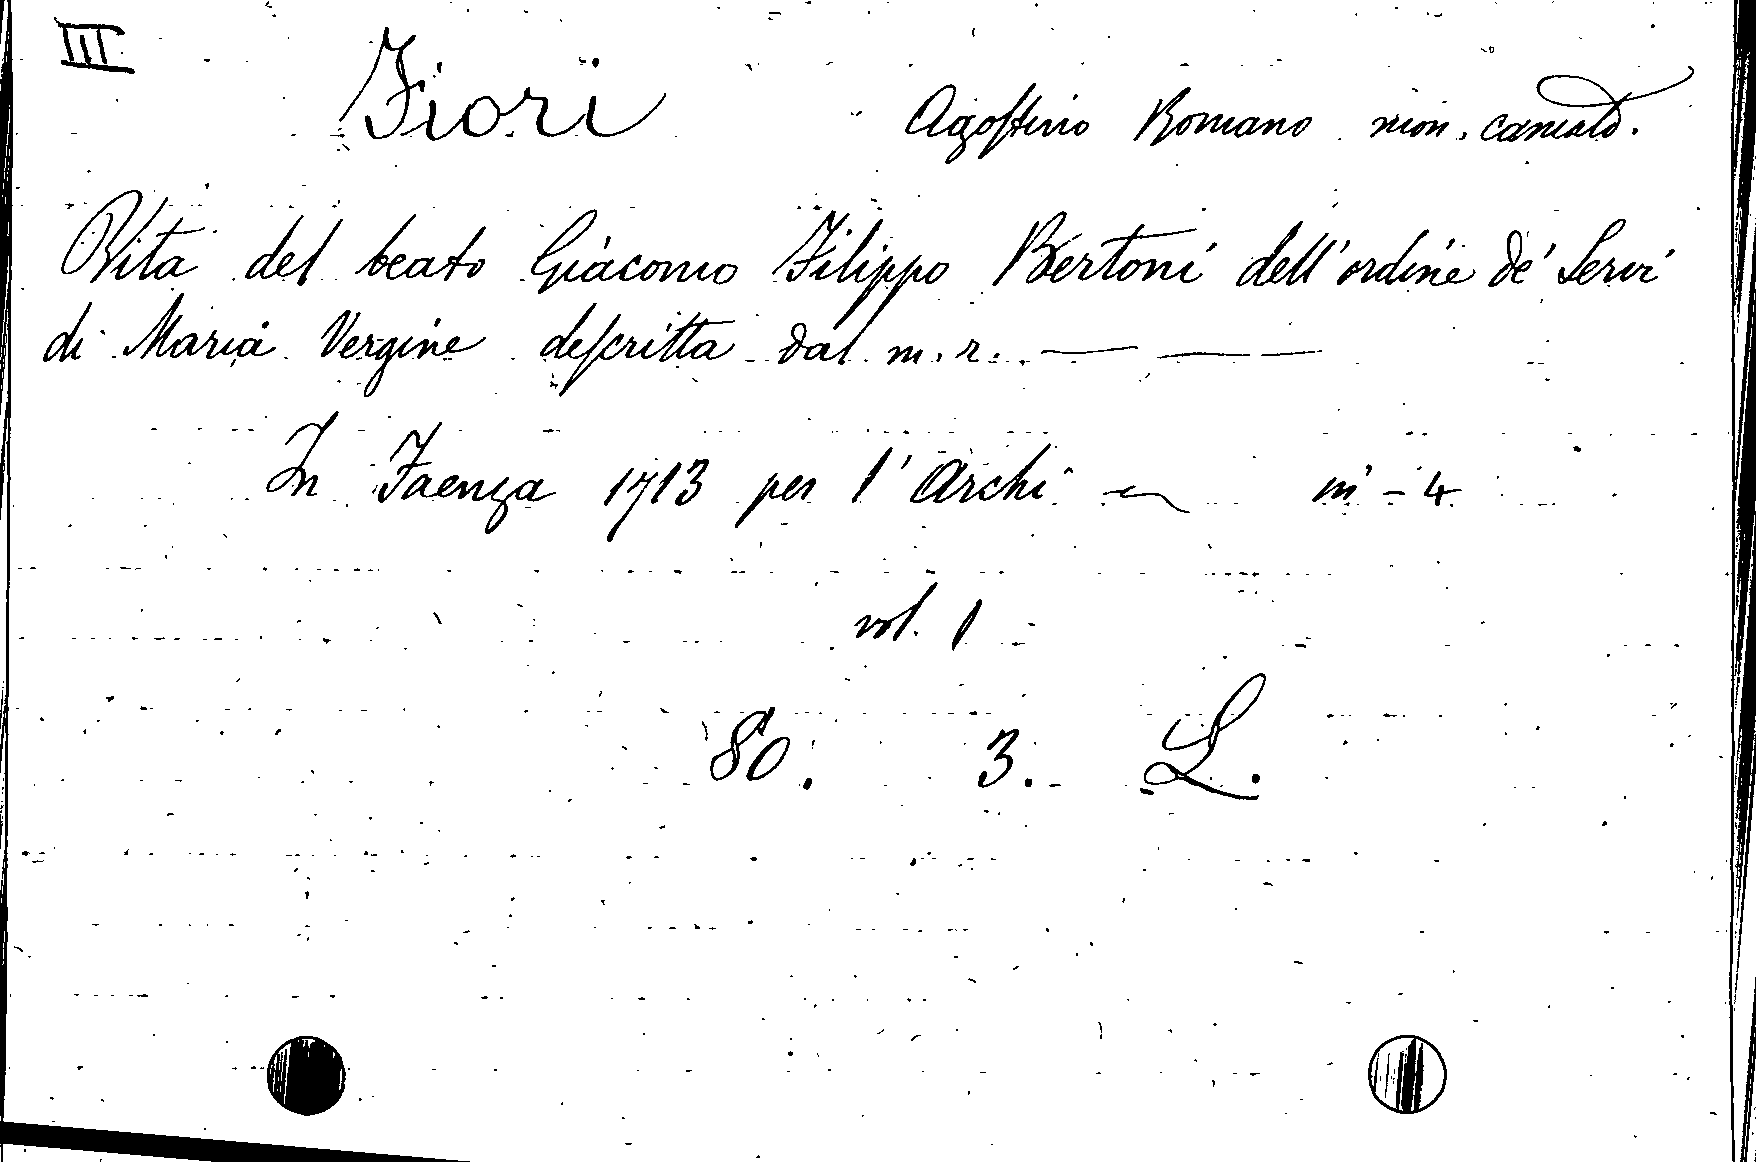 III
Fiori Agostino Romano mon. camald.
Vita del beato Giacomo Filippo Bertoni dell'ordine de' Servi
di Maria Vergine descritta dal m. r. — — —
In Faenza 1713 per l'Archi in-4
vol. 1
80. 3. L.